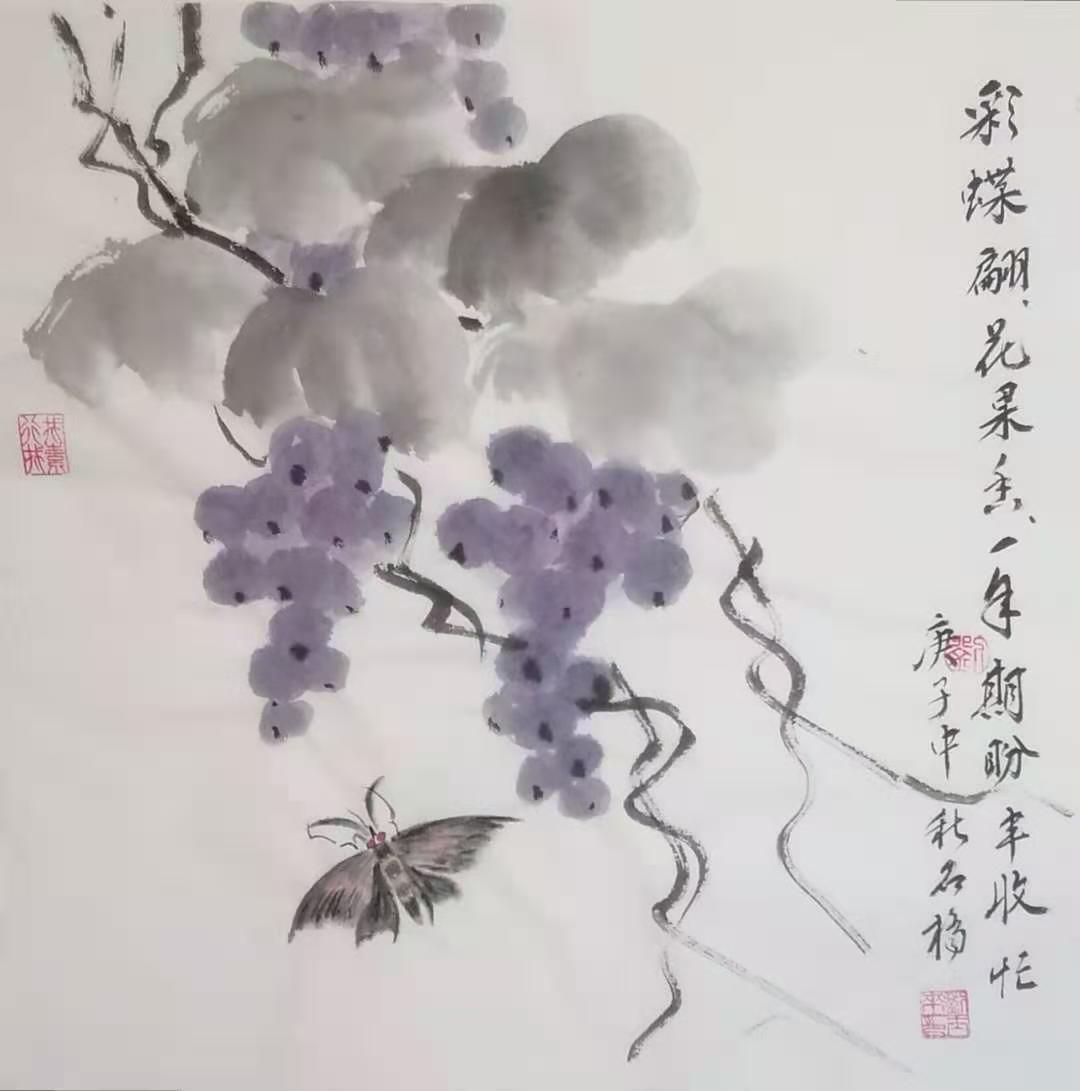 彩蝶翩、花果香、一年期盼丰收忙
庚子中秋